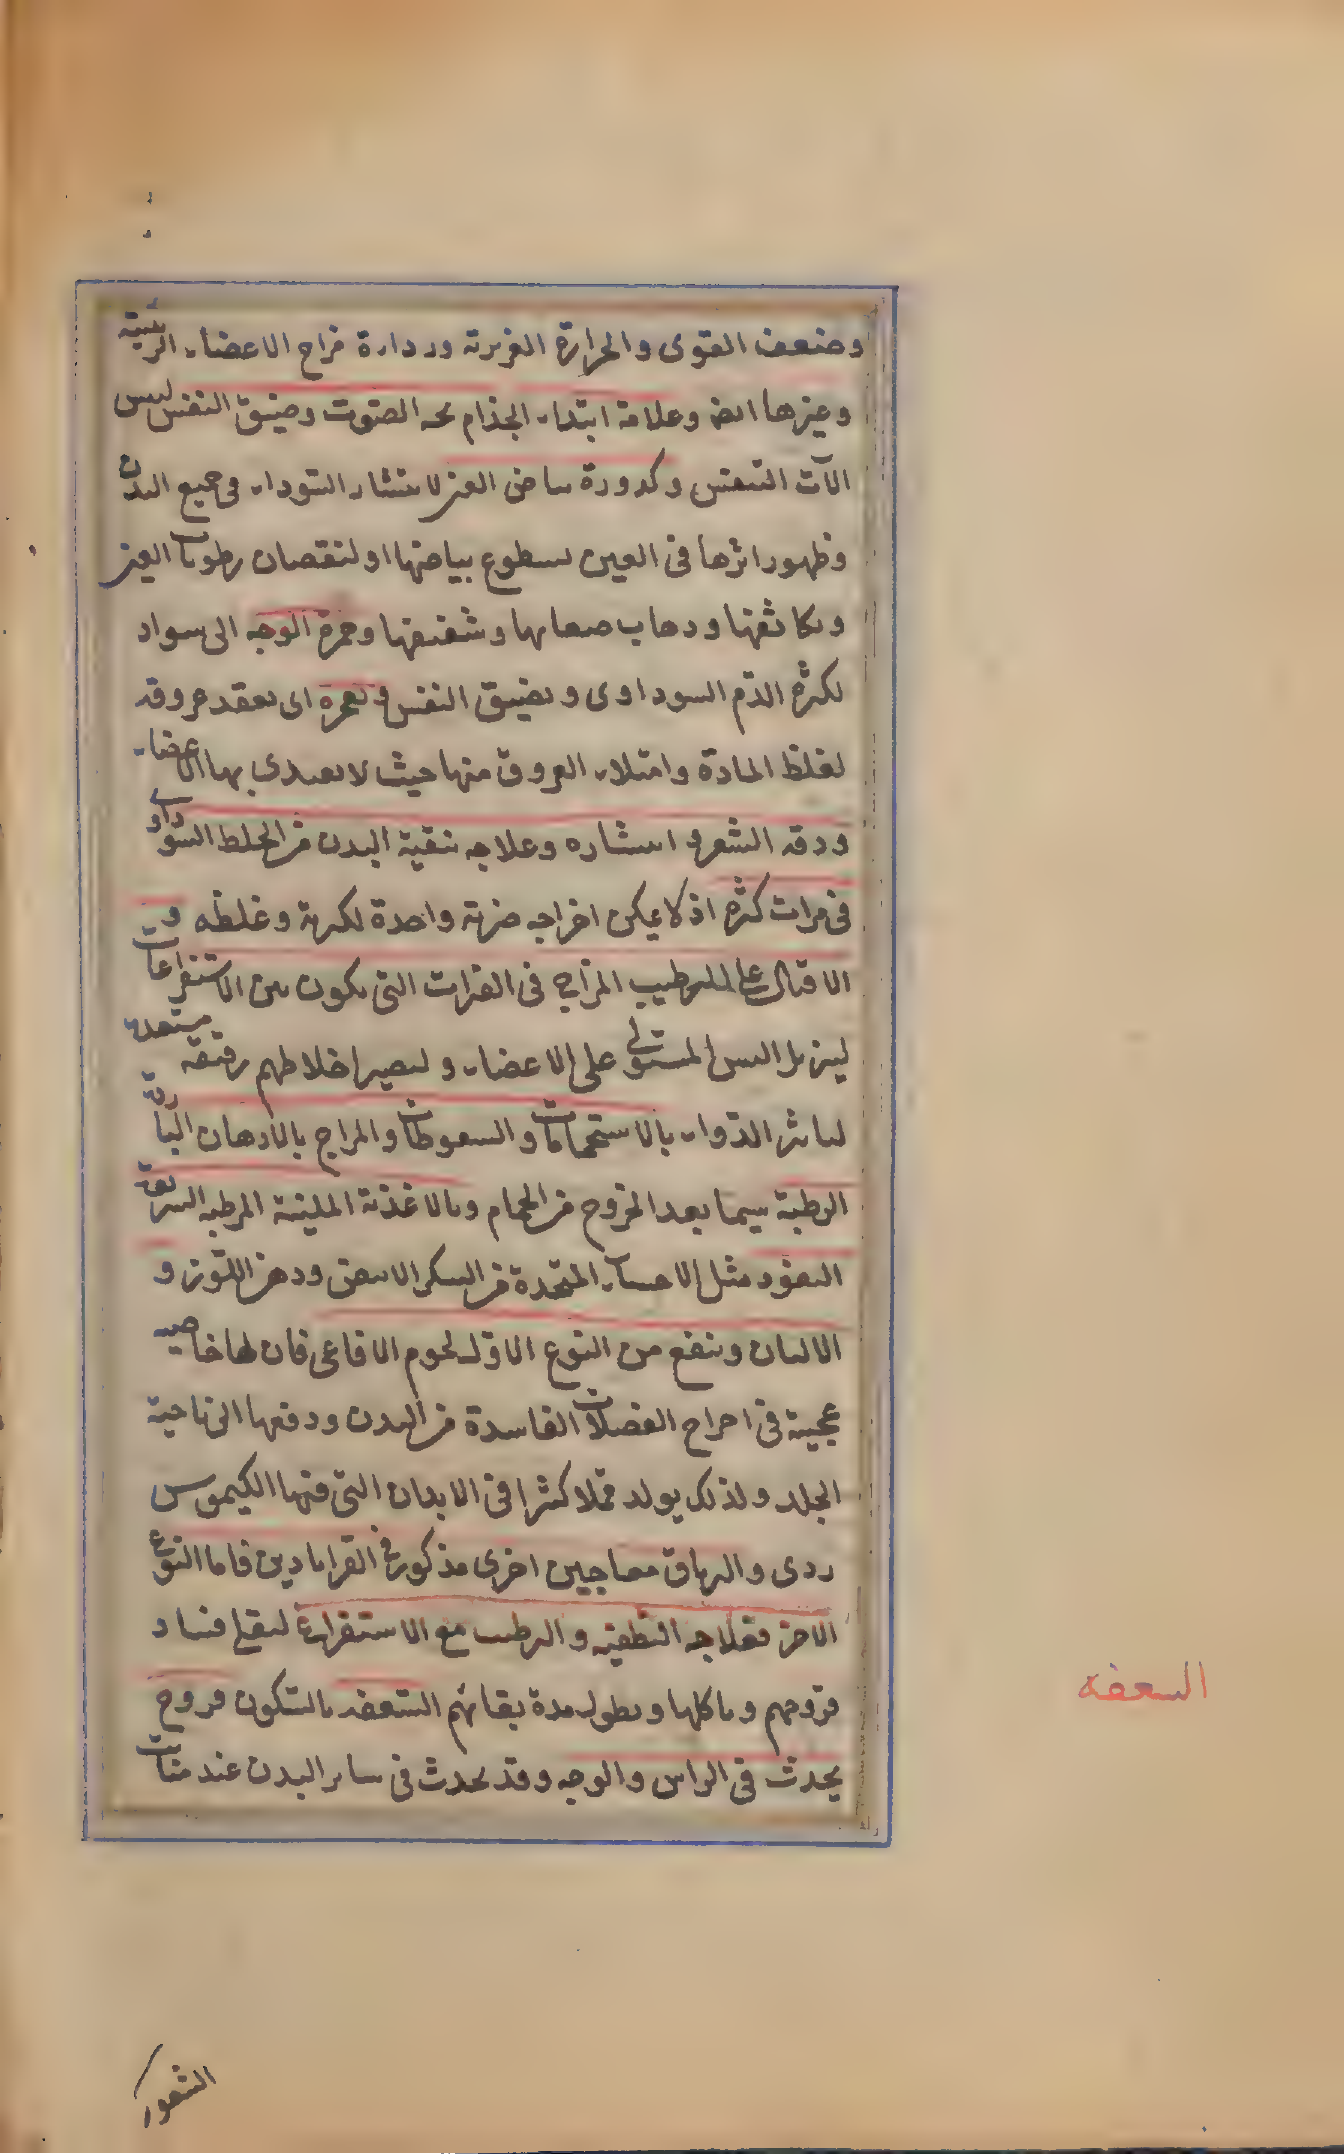 وضعف القوى والحرارة الغريزية ورداءة مزاج الاعضاء الرئيسة
وغيرها ايضا وعلامة ابتداء الجذام بحة الصوت وضيق النفس ليبس
الآت التنفس وكدورة بياض العين لانتشار السوداء في جميع البدن
وظهور اثرها في العين لسطوع بياضها او لنقصان رطوبات العين
وتكاثفها وذهاب صفائها وشفيفها وحمرة الوجه الى سواد
لكثرة الدم السوداوى وبضيق النفس وتعجره اى تعقد عروقه
لغلظ المادة وامتلاء العروق منها حيث لا تغتذى بها الاعضاء
ودقة الشعر وانتشاره وعلاجه تنقية البدن من الخلط السوداو
في مرات كثيرة اذ لا يمكن اخراجه ضربة واحدة لكثرته وغلظه و
الاقبال على الترطيب المزاج في الفترات التى يكون بين الاستفراغات
ليزيل اليبس المستولى على الاعضاء وليصير اخلاطهم رقيقة مستعدة
لتاثير الدواء بالاستحمامات والسعوطات والمراخ بالادهان الباردة
الرطبة سيما بعد الخروج من الحمام وبالاغذية الملينة المرطبة السريعة
النفوذ مثل الاحساء المتخذة من السكر الابيض ودهن اللوز و
الالبان وينفع من النوع الاول لحوم الافاعى فان لها خاصية
عجيبة في اخراج الفضلات الفاسدة من البدن ودفعها الى ناحية
الجلد ولذلك يولد قملا كثيرا في الابدان التى فيها الكيموس
ردى والترياق ومعاجين اخرى مذكورة في القرابادين فاما النوع
الاخر فعلاجه التطفية والترطيب مع الاستفراغ ليقل فساد
قروحهم وتاكلها ويطول مدة بقائهم السعفه بالسكون قروح
يحدث في الراس والوجه وقد يحدث في سائر البدن عند منابت
السعفه
الشعور